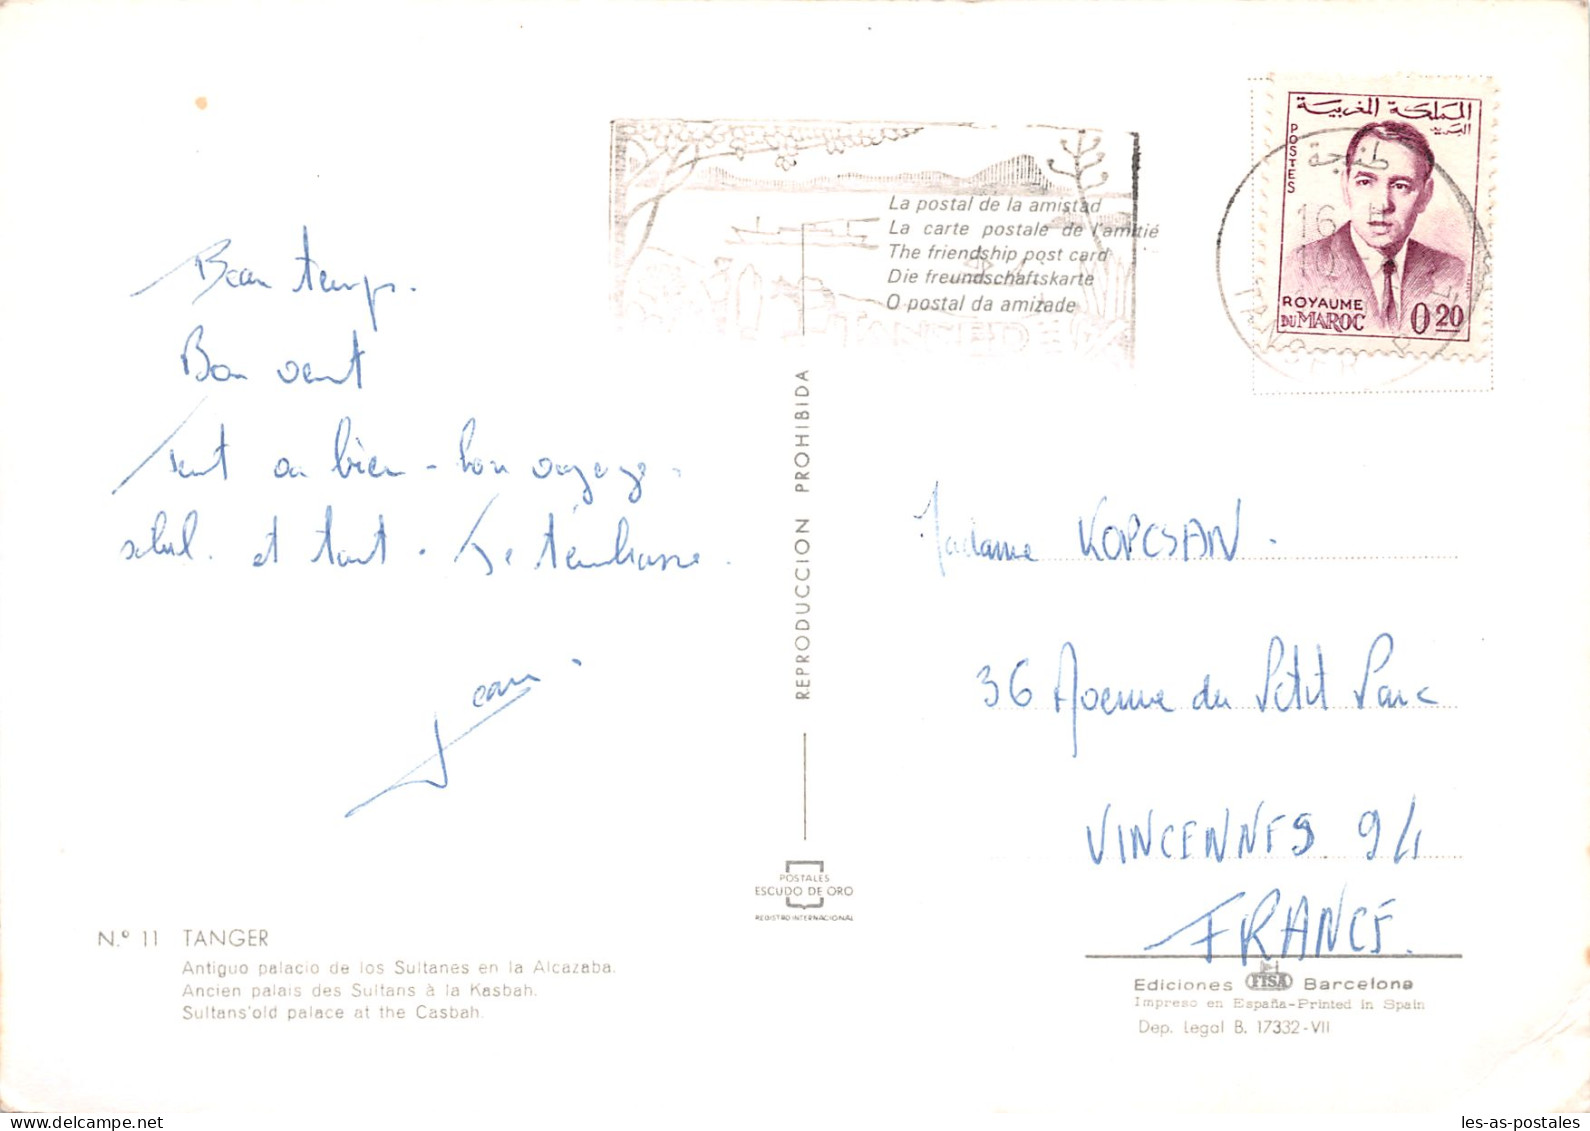 Beau temps.
Bon vent
tout va bien - bon voyage.
salut. et tout. Je t'embrasse.
Jean
La postal de la amistad
La carte postale de l'amitié
The friendship post card
Die freundschaftskarte
O postal da amizade
المملكة المغربية
البريد
POSTES
ROYAUME
DU MAROC 0.20
طنجة
16
10
TANGER
REPRODUCCION PROHIBIDA
Madame KOPCSAN.
36 Avenue du Petit Parc
VINCENNES 94
FRANCE.
POSTALES
ESCUDO DE ORO
REGISTRO INTERNACIONAL
N.º 11 TANGER
Antiguo palacio de los Sultanes en la Alcazaba.
Ancien palais des Sultans à la Kasbah.
Sultans'old palace at the Casbah.
Ediciones FISA Barcelona
Impreso en España-Printed in Spain
Dep. Legal B. 17332-VII
les-as-postales